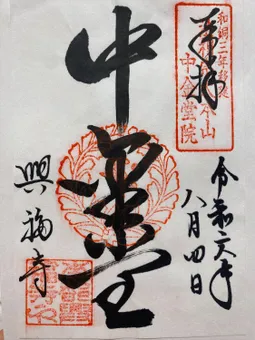 奉拝
和銅三年
本山
中金堂院
中金堂
令和
年
八月四日
興福寺